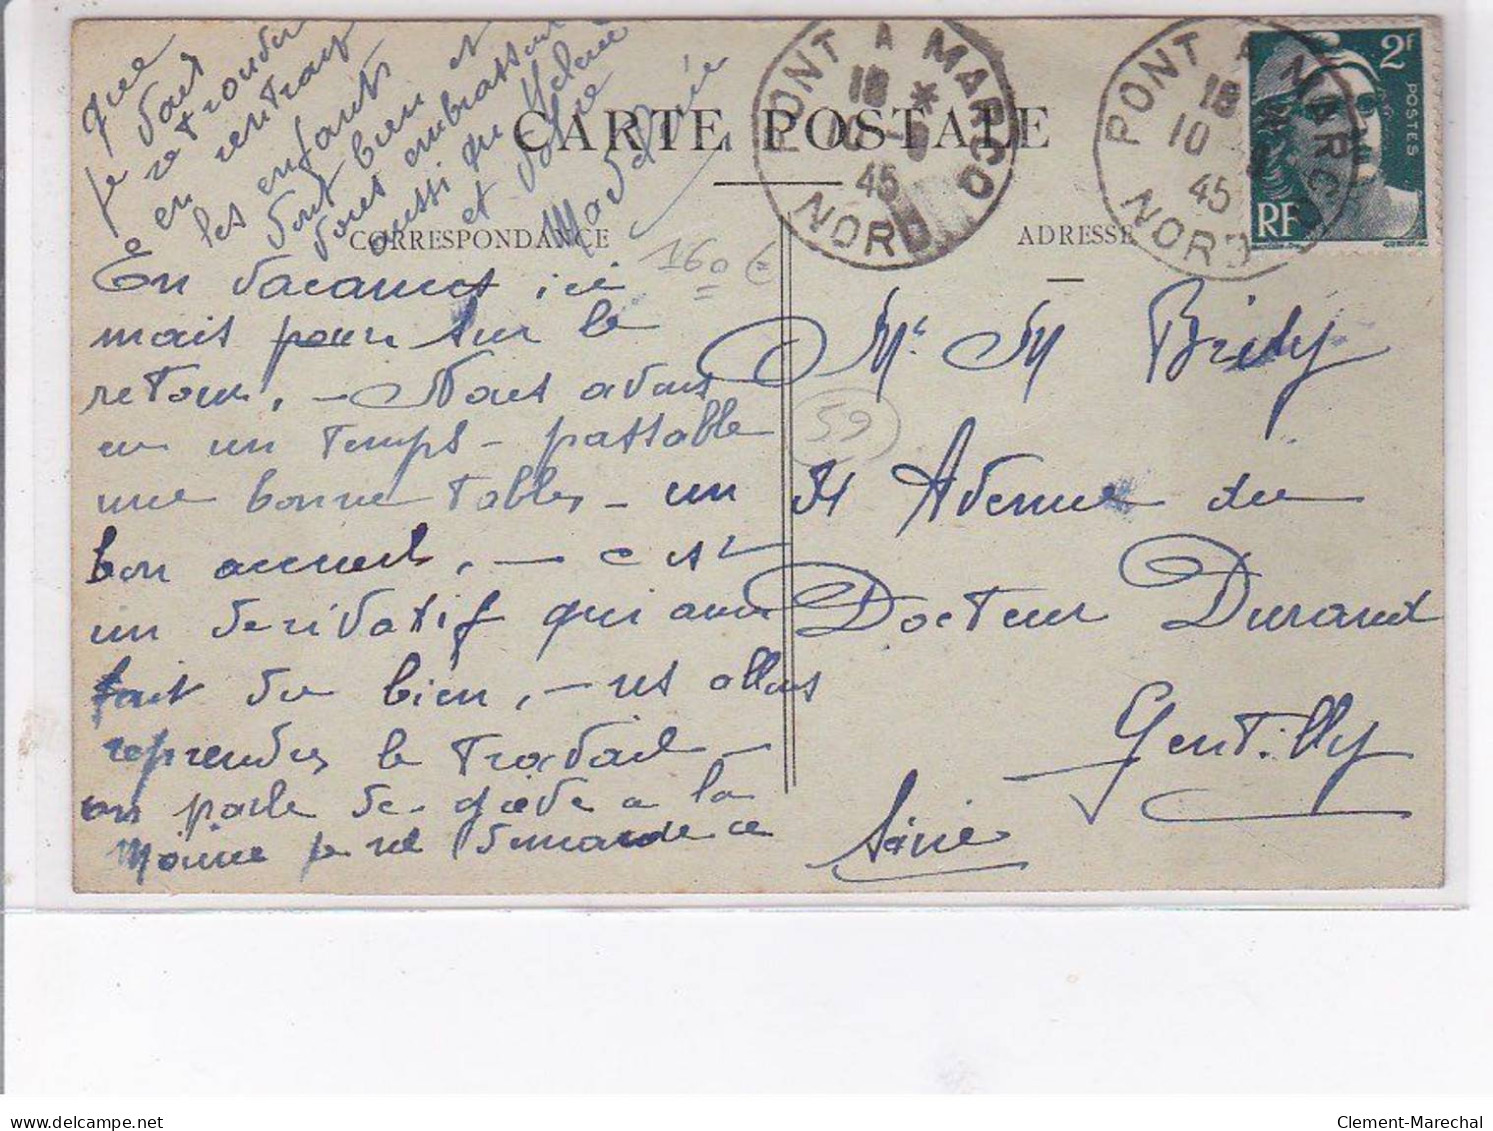 CARTE POSTALE
CORRESPONDANCE
ADRESSE
PONT A MARCQ
18 *
10 - 9
45
NORD
PONT A MARCQ
18
10
45
NORD
2F
POSTES
RF
160 €
59
En vacances ici
mais pour sur le
retour, - Nous avons
eu un temps - passable
une bonne table - un
bon accueil, - c est
un derivatif qui aura
fait du bien, - ns allons
reprendre le travail -
on parle de grève a la
Mairie je ne demande ce
que
je vais
retrouver
en rentrant
les enfants
sont bien et
vous embrassent
aussi qu Helene
et votre
Madeleine
Mr M Bridy
34 Avenue du
Docteur Durand
Gentilly
Seine
Clement-Marechal
www.delcampe.net